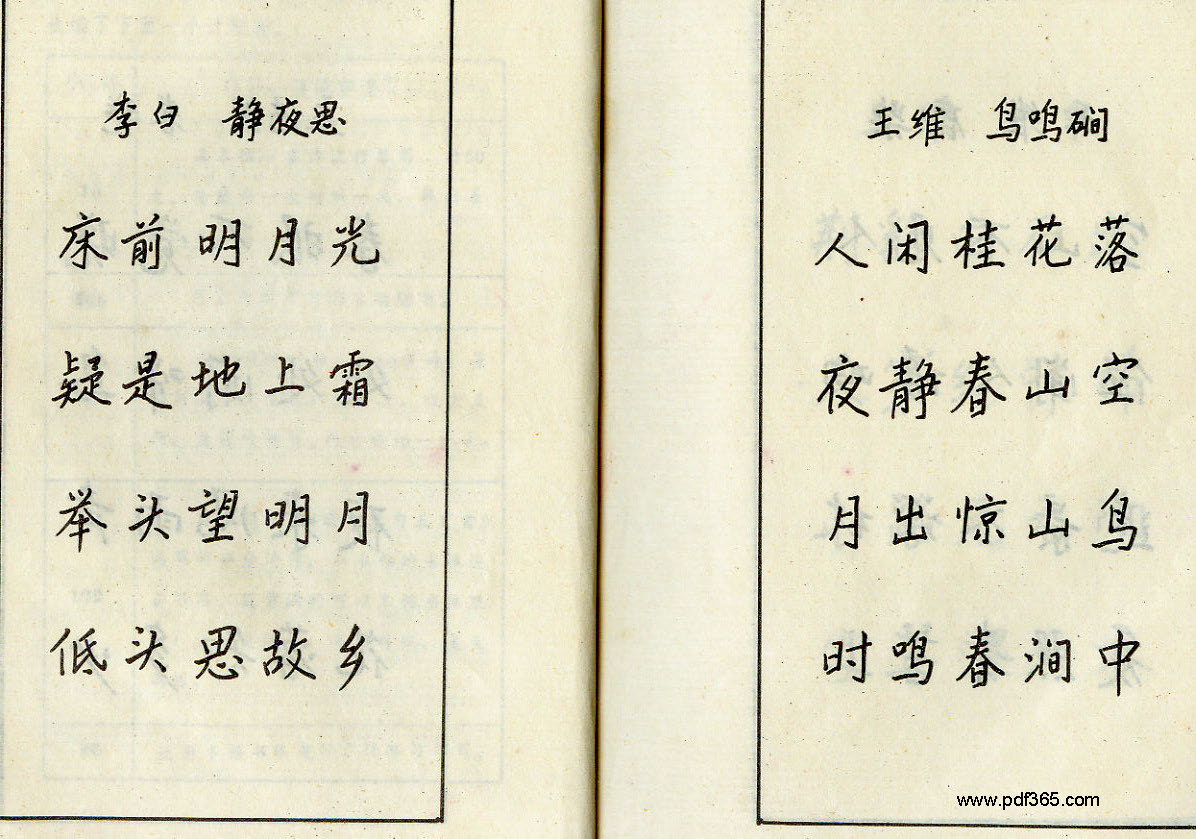 李白 静夜思
床前明月光
疑是地上霜
举头望明月
低头思故乡
王维 鸟鸣磵
人闲桂花落
夜静春山空
月出惊山鸟
时鸣春涧中
www.pdf365.com